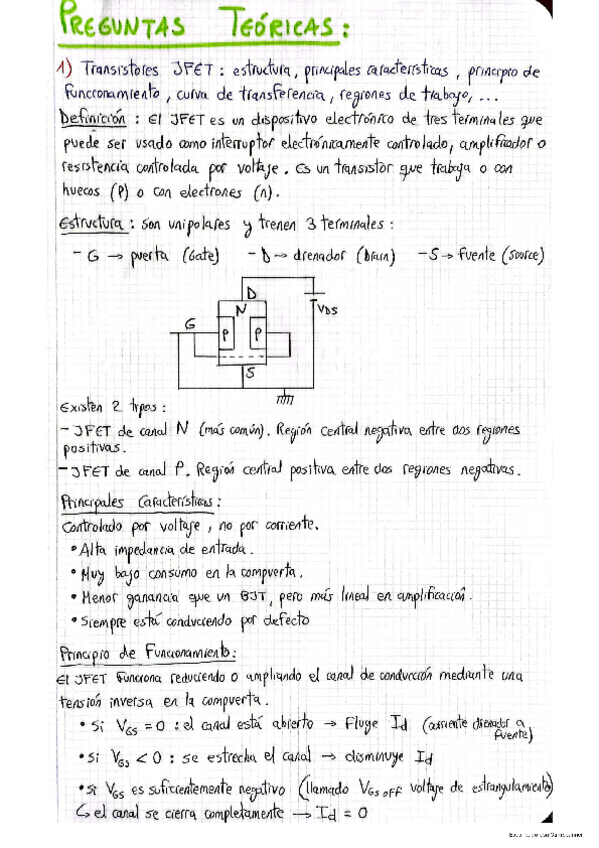 PREGUNTAS TEÓRICAS:
1) Transistores JFET: estructura, principales características, principio de
funcionamiento, curva de transferencia, regiones de trabajo, ...
Definición: El JFET es un dispositivo electrónico de tres terminales que
puede ser usado como interruptor electrónicamente controlado, amplificador o
resistencia controlada por voltaje. Es un transistor que trabaja o con
huecos (P) o con electrones (n).
Estructura: son unipolares y tienen 3 terminales:
- G → puerta (Gate) - D → drenador (Drain) - S → Fuente (Source)
D
N
VDS
G
P P
S
Existen 2 tipos:
- JFET de canal N (más común). Región central negativa entre dos regiones
positivas.
- JFET de canal P. Región central positiva entre dos regiones negativas.
Principales Características:
Controlado por voltaje, no por corriente.
• Alta impedancia de entrada.
• Muy bajo consumo en la compuerta.
• Menor ganancia que un BJT, pero más lineal en amplificación.
• Siempre está conduciendo por defecto
Principio de Funcionamiento:
El JFET funciona reduciendo o ampliando el canal de conducción mediante una
tensión inversa en la compuerta.
• Si VGS = 0 : el canal está abierto → Fluye Id (corriente drenador a
fuente)
• Si VGS < 0 : se estrecha el canal → disminuye Id
• Si VGS es suficientemente negativo (llamado VGS OFF voltaje de estrangulamiento)
↳ el canal se cierra completamente → Id = 0